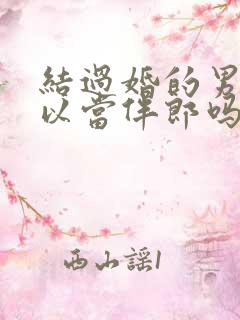 結過婚的男
以當伴郎嗎
西山謠1